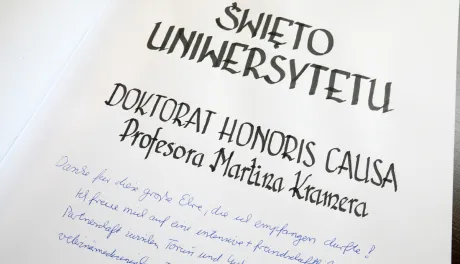 ŚWIĘTO
UNIWERSYTETU
DOKTORAT HONORIS CAUSA
Profesora Martina Kramera
Danke für diese große Ehre, die ich empfangen durfte!
Ich freue mich auf eine intensive + freundschaftl
Partnerschaft zwischen Toruń und